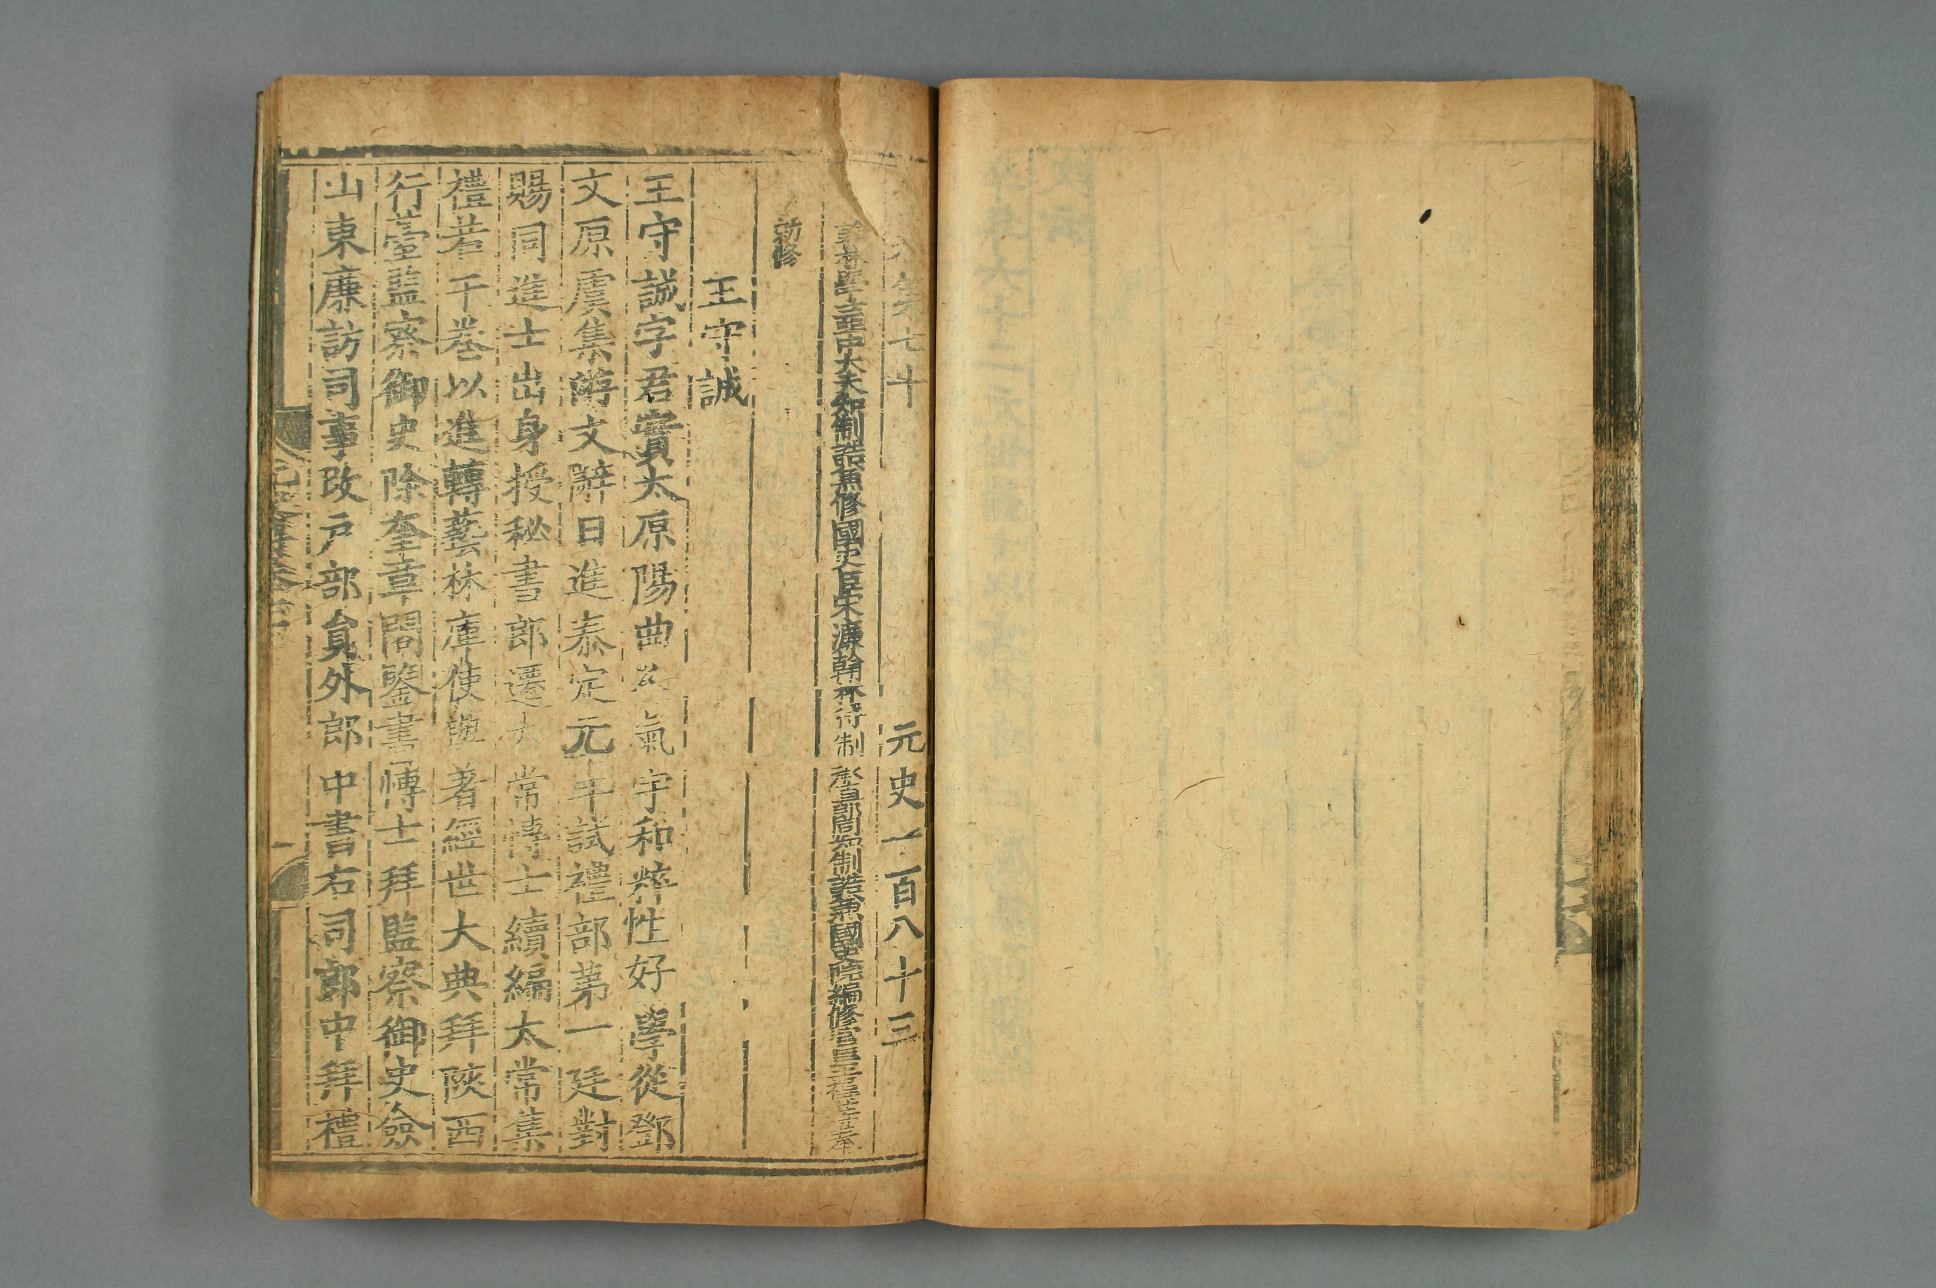 第七十 元史一百八十三
學士亞中大夫知制誥兼修國史臣宋濂翰林待制承直郎同知制誥兼國史院編修官臣王禕等奉
勅修
王守誠
王守誠字君實太原陽曲人氣宇和粹性好學從鄧
文原虞集游文辭日進泰定元年試禮部第一廷對
賜同進士出身授秘書郎遷太常博士續編太常集
禮若干卷以進轉藝林庫使與著經世大典拜陝西
行臺監察御史除奎章閣鑒書博士拜監察御史僉
山東廉訪司事改戶部員外郎中書右司郎中拜禮